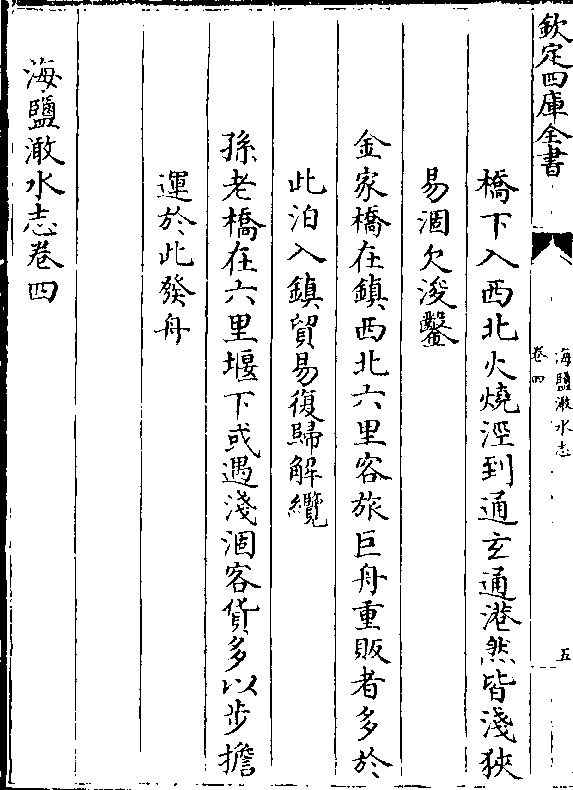 欽定四庫全書
海鹽澉水志
卷四
五
橋下入西北火燒涇到通玄通港然皆淺狹
易涸欠浚鑿
金家橋在鎮西北六里客旅巨舟重販者多於
此泊入鎮貿易復歸解纜
孫老橋在六里堰下或遇淺涸客貨多以步擔
運於此發舟
海鹽澉水志卷四